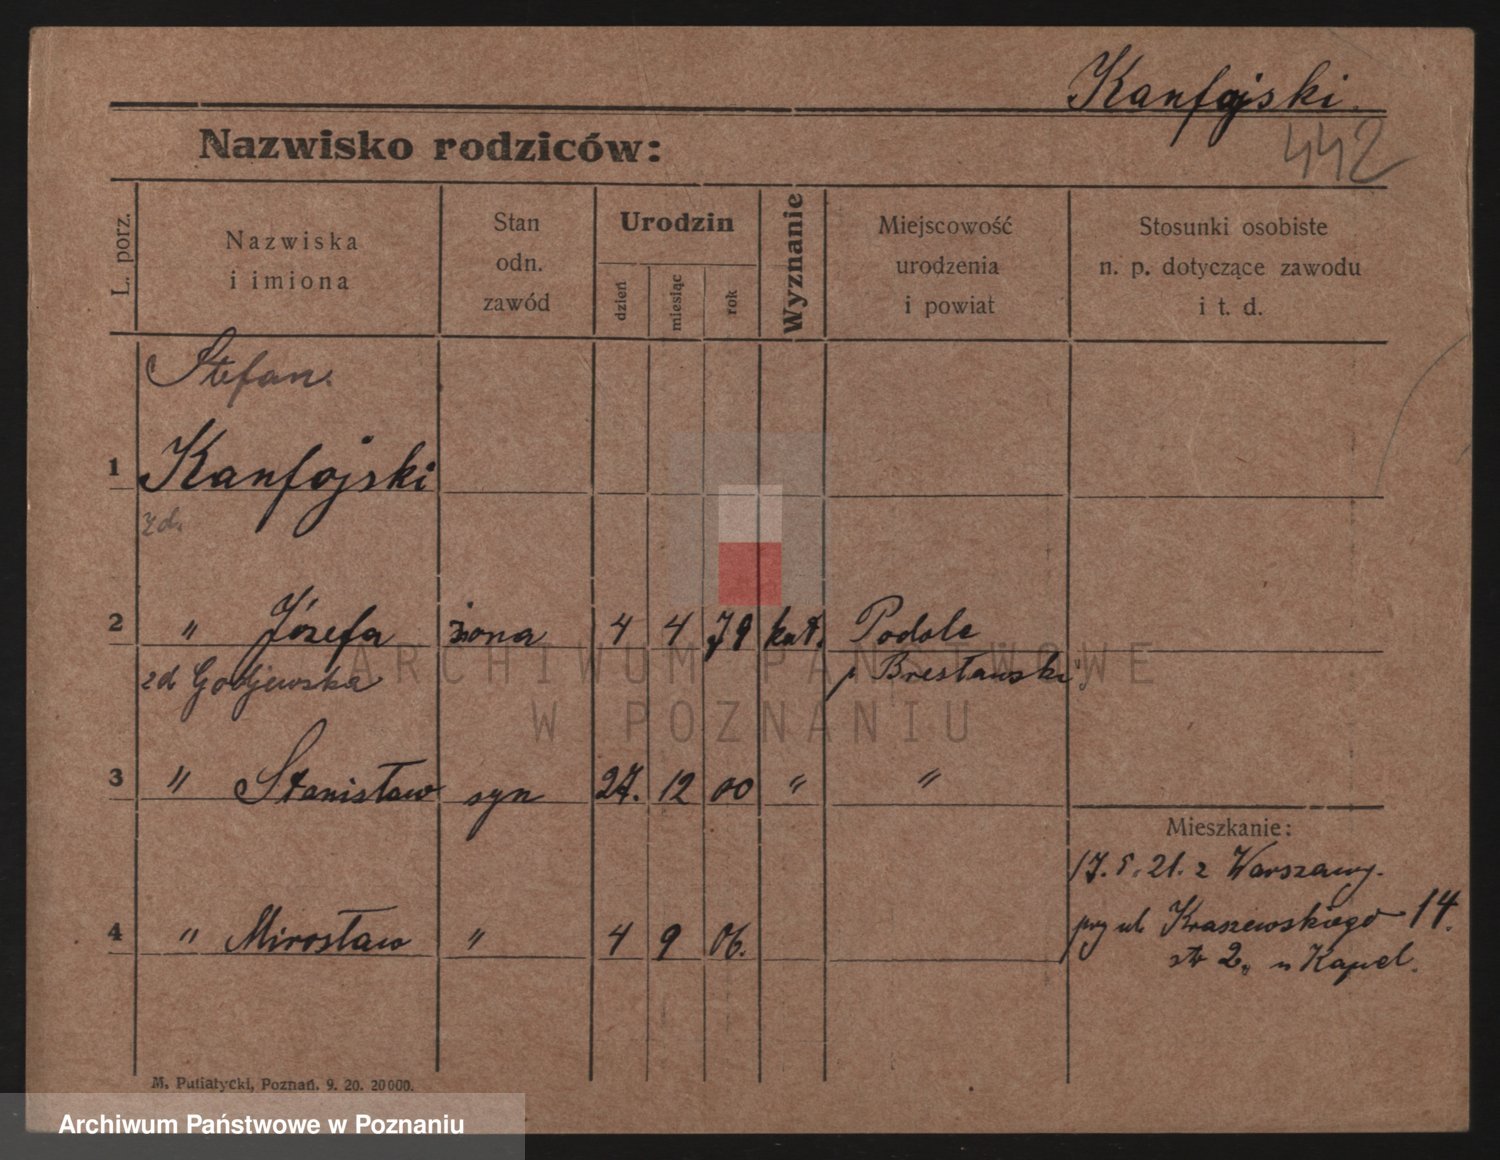 Kanfojski.
442
Nazwisko rodziców:
L. porz.
Nazwiska
i imiona
Stan
odn.
zawód
Urodzin
dzień
miesiąc
rok
Wyznanie
Miejscowość
urodzenia
i powiat
Stosunki osobiste
n. p. dotyczące zawodu
i t. d.
Stefan.
1 Kanfojski
zd.
2 " Józefa żona 4 4 79 kat. Podole
zd p Bresławski
3 " Stanisław syn 27. 12 00 " "
Mieszkanie:
17. 5. 21. z Warszawy.
4 " Mirosław " 4 9 06.
przy ul. Kraszewskiego 14.
str 2, u Kapel.
M. Putiatycki, Poznań. 9. 20. 20000.
ARCHIWUM PAŃSTWOWE
W POZNANIU
Archiwum Państwowe w Poznaniu